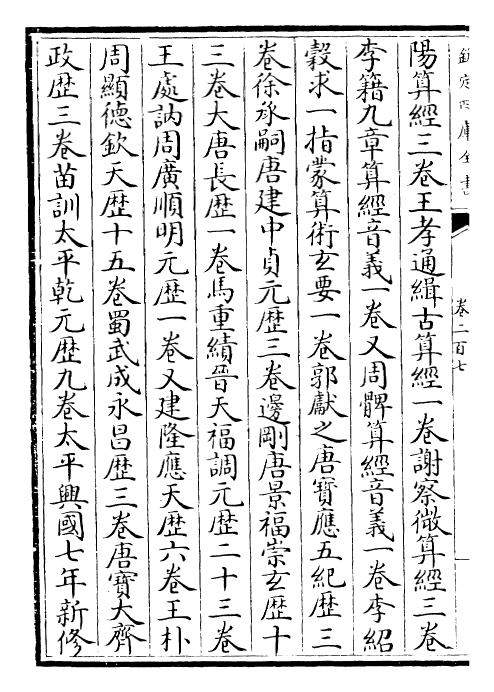 欽定四庫全書
卷二百七
陽算經三卷王孝通緝古算經一卷謝察微算經三卷
李籍九章算經音義一卷又周髀算經音義一卷李紹
穀求一指蒙算術玄要一卷郭獻之唐寶應五紀歴三
卷徐承嗣唐建中貞元歴三卷邊剛唐景福崇玄歴十
三卷大唐長歴一卷馬重績晉天福調元歴二十三卷
王處訥周廣順明元歴一卷又建隆應天歴六卷王朴
周顯德欽天歴十五卷蜀武成永昌歴三卷唐寶大齊
政歴三卷苗訓太平乾元歴九卷太平興國七年新修